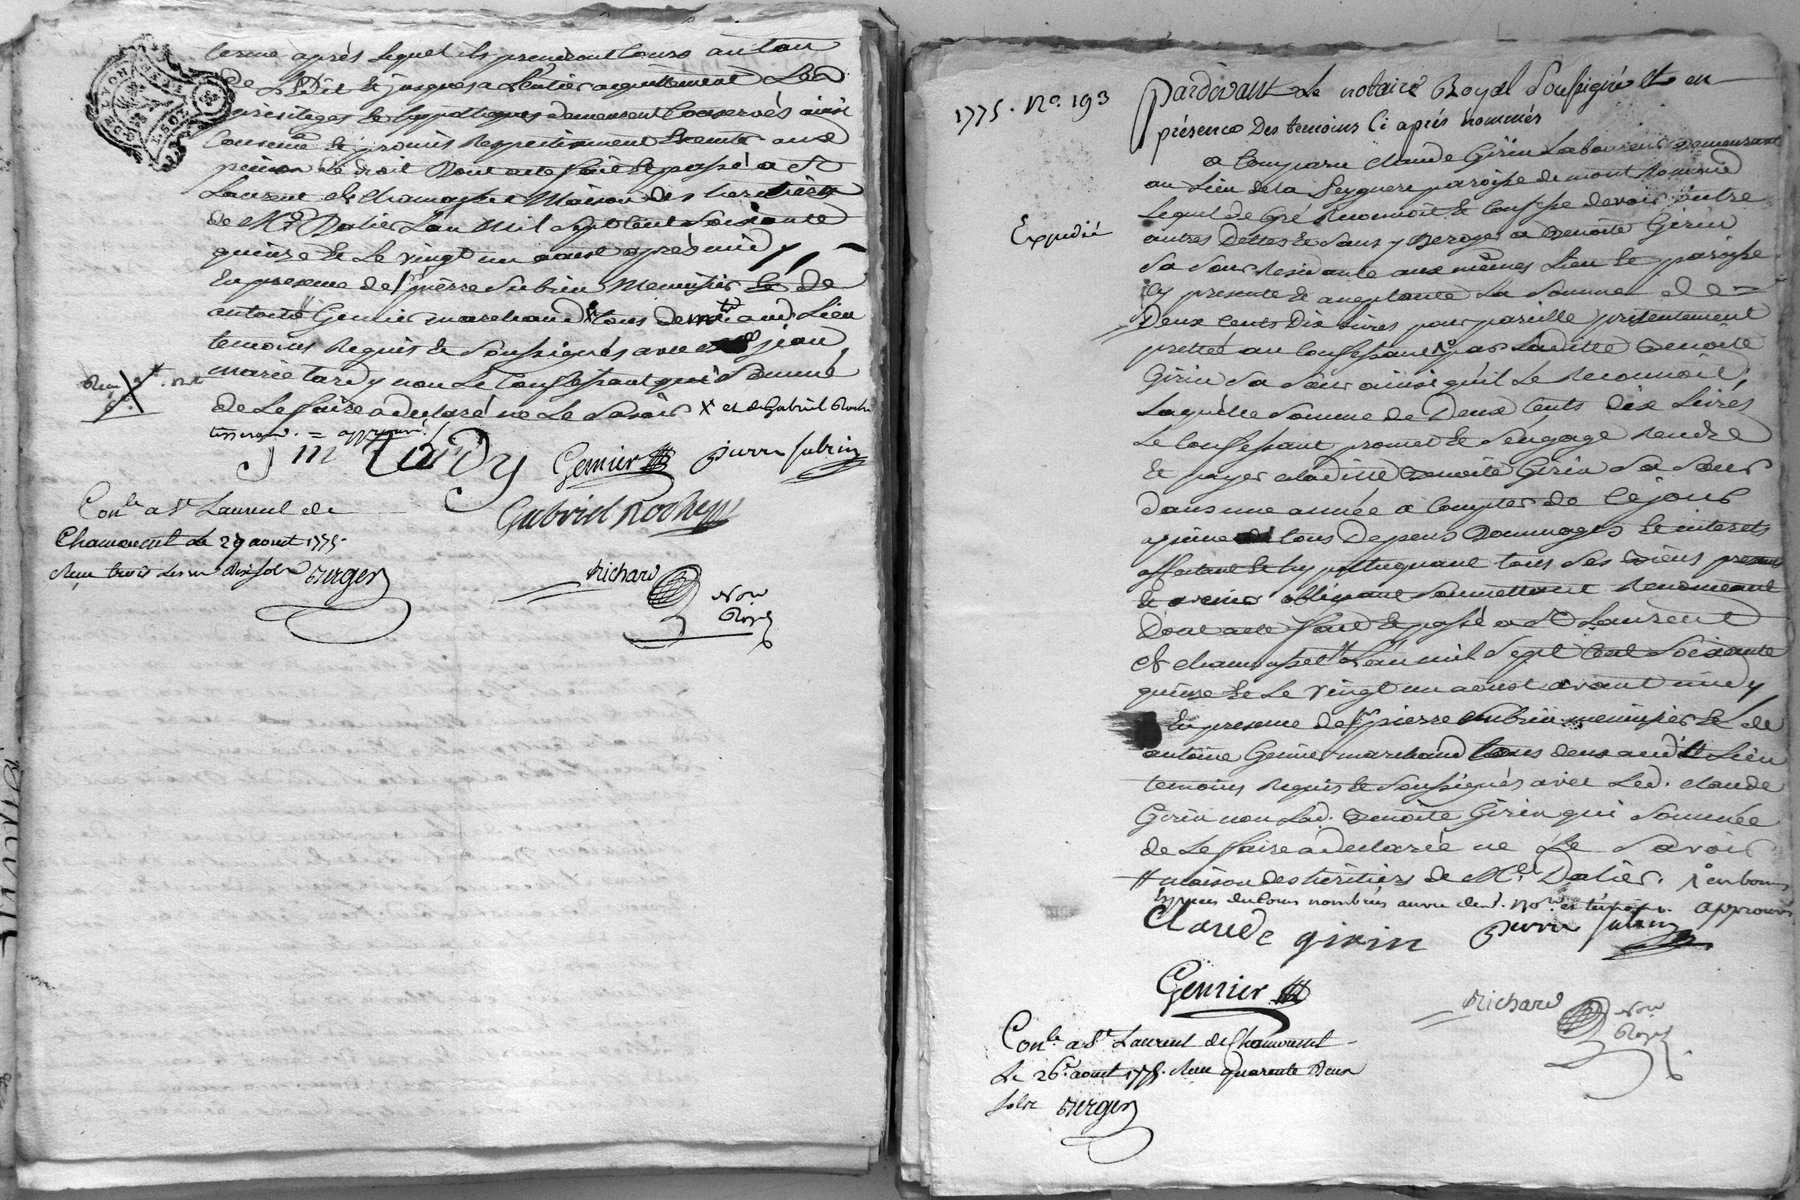 terme après lequel ils prendront cours au taux
de L'Edit et jusques a L'entier acquittement Les
privileges et hypotheques demeurent conservés ainsi
convenu et promis respectivement
Dont acte fait et passé a St
Laurent de Chamousset Maison des heritiers
de Me. Dalier L'an mil sept cent soixante
quinze et Le vingt un aoust après midy
En presence de Sr. pierre Subrin Menuisier et de
antoine Genier marchand tous deux aud. Lieu
temoins Requis et soussignés avec jean
marie tardy non Le Confessant qui sommé
de Le faire a declaré ne Le savoir X et de Gabriel
tisserand. = approuvé
J m Tardy Gemier pierre subrin
Gabriel
Conlé a St. Laurent de
Chamousset Le 29 aoust 1775.
Reçu trois Livres dix sols Berger
Richard Nore
Royal
1775. No. 193
Pardevant Le notaire Royal Soussigné Et en
présence Des temoins Ci après nommés
a Comparu claude Girin Laboureur demeurant
au Lieu de la paroisse de mont Romand
Lequel de Gré Reconnoit et Confesse devoir outre
Expedié
autres Dettes et Sans y Deroger a Benoite Girin
Sa Sœur Residante aux mêmes Lieu et paroisse
icy presente et acceptante La Somme de
Deux cents Dix Livres pour pareille présentement
prettée au Confessant par Laditte Benoite
Girin Sa Sœur ainsi qu'il Le Reconnoit,
Laquelle Somme de Deux Cents dix Livres
Le Confessant promet et s'engage Rendre
et payer a laditte Benoite Girin Sa Sœur
dans une année a Compter de Cejour
a peine de tous Depens Dommages et interets
affectant et hypothequant tous Ses Biens presents
et avenir obligeant Soumettant Renonceant
Dont acte fait et passé a St. Laurent
de chamousset # L'an mil Sept Cent Soixante
quinze et Le vingt un aoust avant midy
En presence de Sr. pierre Subrin menuisier et de
antoine Gemier marchand tous deux audit Lieu
temoins Requis et Soussignés avec Led. claude
Girin non Lad. Benoite Girin qui Sommée
de Le faire a declarée ne Le Savoir
# maison des héritiers de Me. Dalier. en bonnes
espèces de Cours nombrées au vu de nd. Nore. et témoins. approuvé
Claude girin pierre subrin
Gemier
Richard Nore
Royal
Conlé a St. Laurent de Chamousset
Le 26. aoust 1775. Reçu quarante Deux
sols Berger